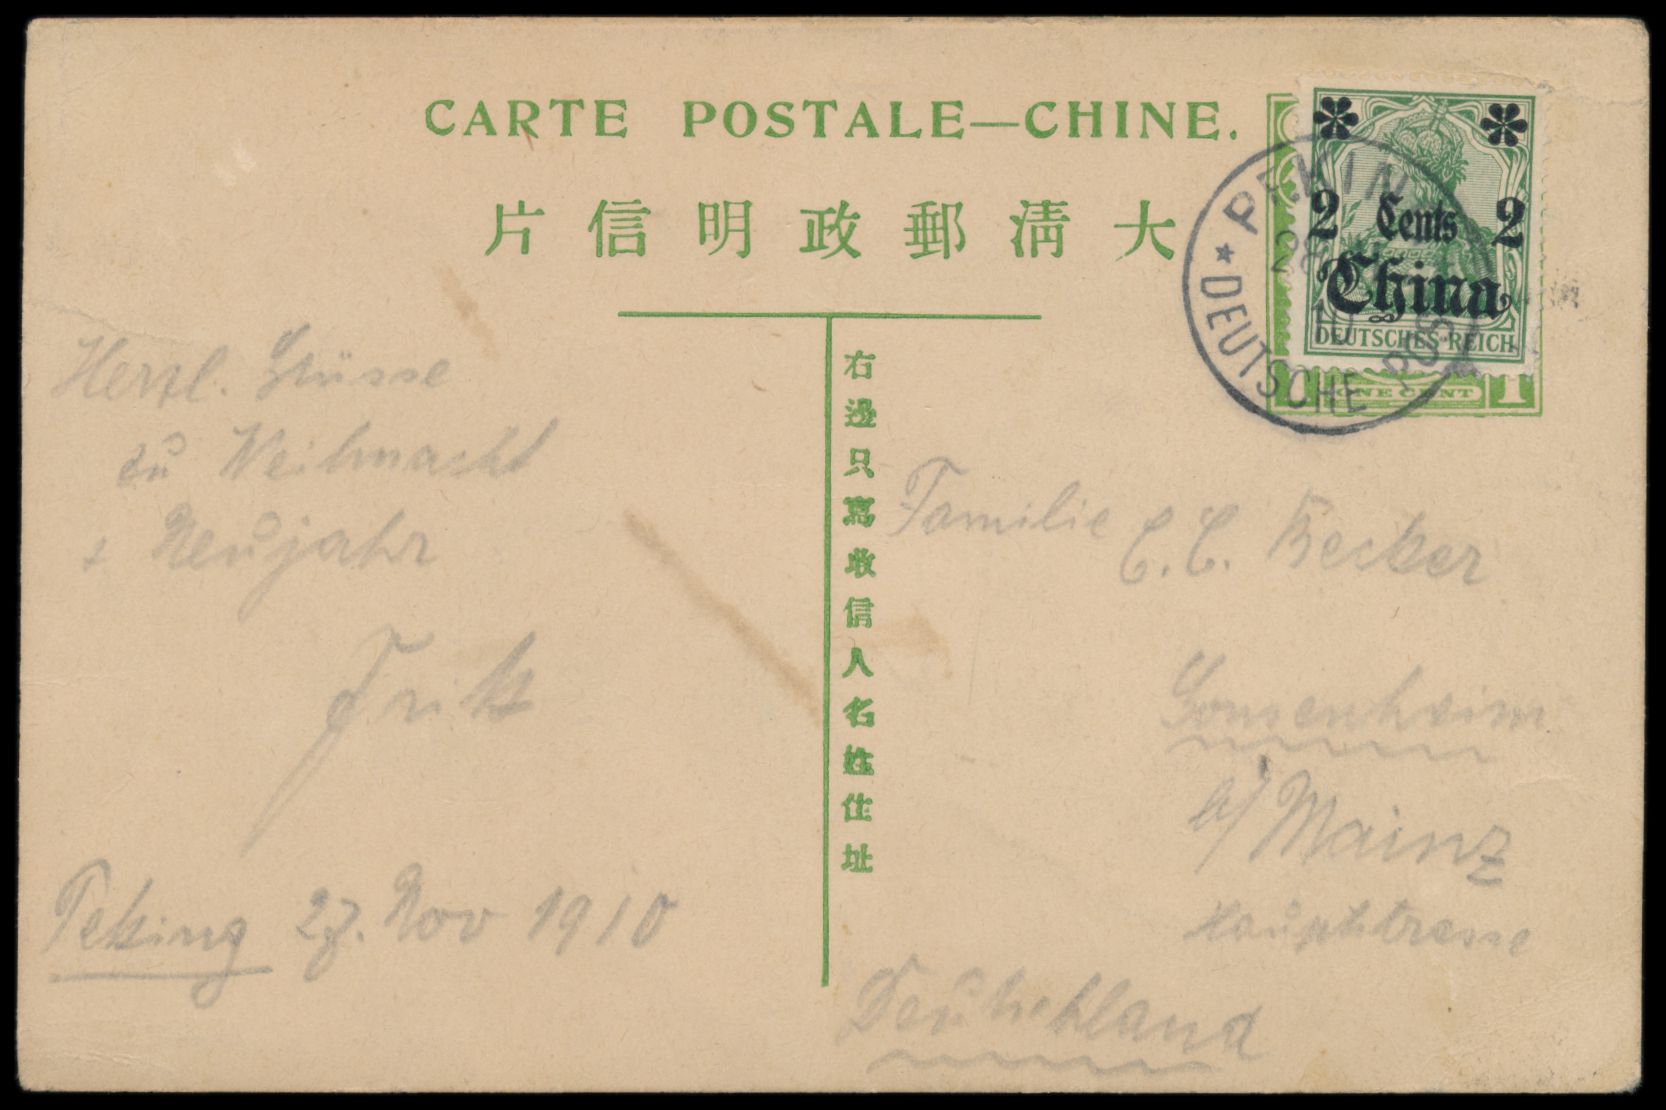 CARTE POSTALE—CHINE.
大清郵政明信片
右邊只寫收信人名姓住址
2 Cents 2
China
DEUTSCHES REICH
1 ONE CENT 1
PEKIN
★ DEUTSCHE POS
Herzl. Grüsse
zu Weihnacht
+ Neujahr
Fritz
Peking 27. Nov 1910
Familie C. C. Becker
Gonsenheim
b/ Mainz
Hauptstrasse
Deutschland